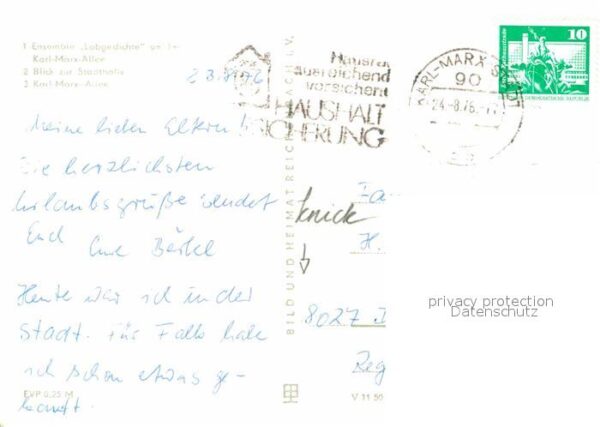 1 Ensemble "Lobgedichte" an der
Karl-Marx-Allee
2 Blick zur Stadthalle
3 Karl-Marx-Allee
23.8.76
Meine lieben Eltern!
Die herzlichsten
Urlaubsgrüße sendet
Euch Eure Bärbel
Heute war ich in der
Stadt. Für Falk habe
ich schon etwas ge-
kauft.
EVP 0,25 M
BILD UND HEIMAT REICHENBACH I.V.
V 11 50
Hausrat
ausreichend
versichert
HAUSHALT
SICHERUNG
KARL-MARX-STADT
90
24.-8.76.-11
10
DEUTSCHE DEMOKRATISCHE REPUBLIK
knick
Fa
H.
8027 D
Reg
privacy protection
Datenschutz